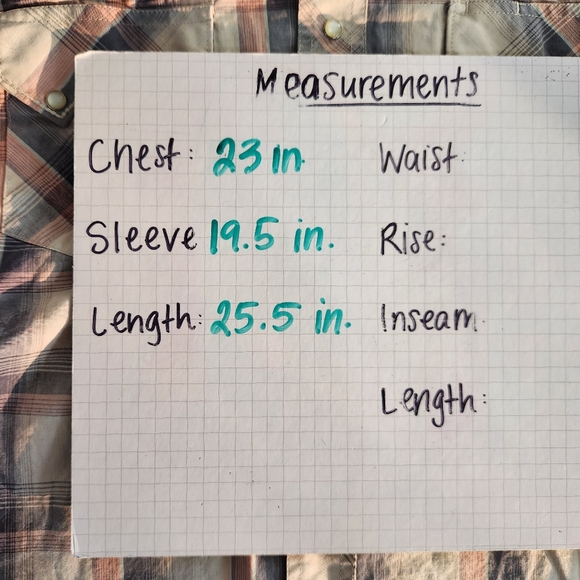 Measurements
Chest: 23 in. Waist:
Sleeve 19.5 in. Rise:
Length: 25.5 in. Inseam
Length: